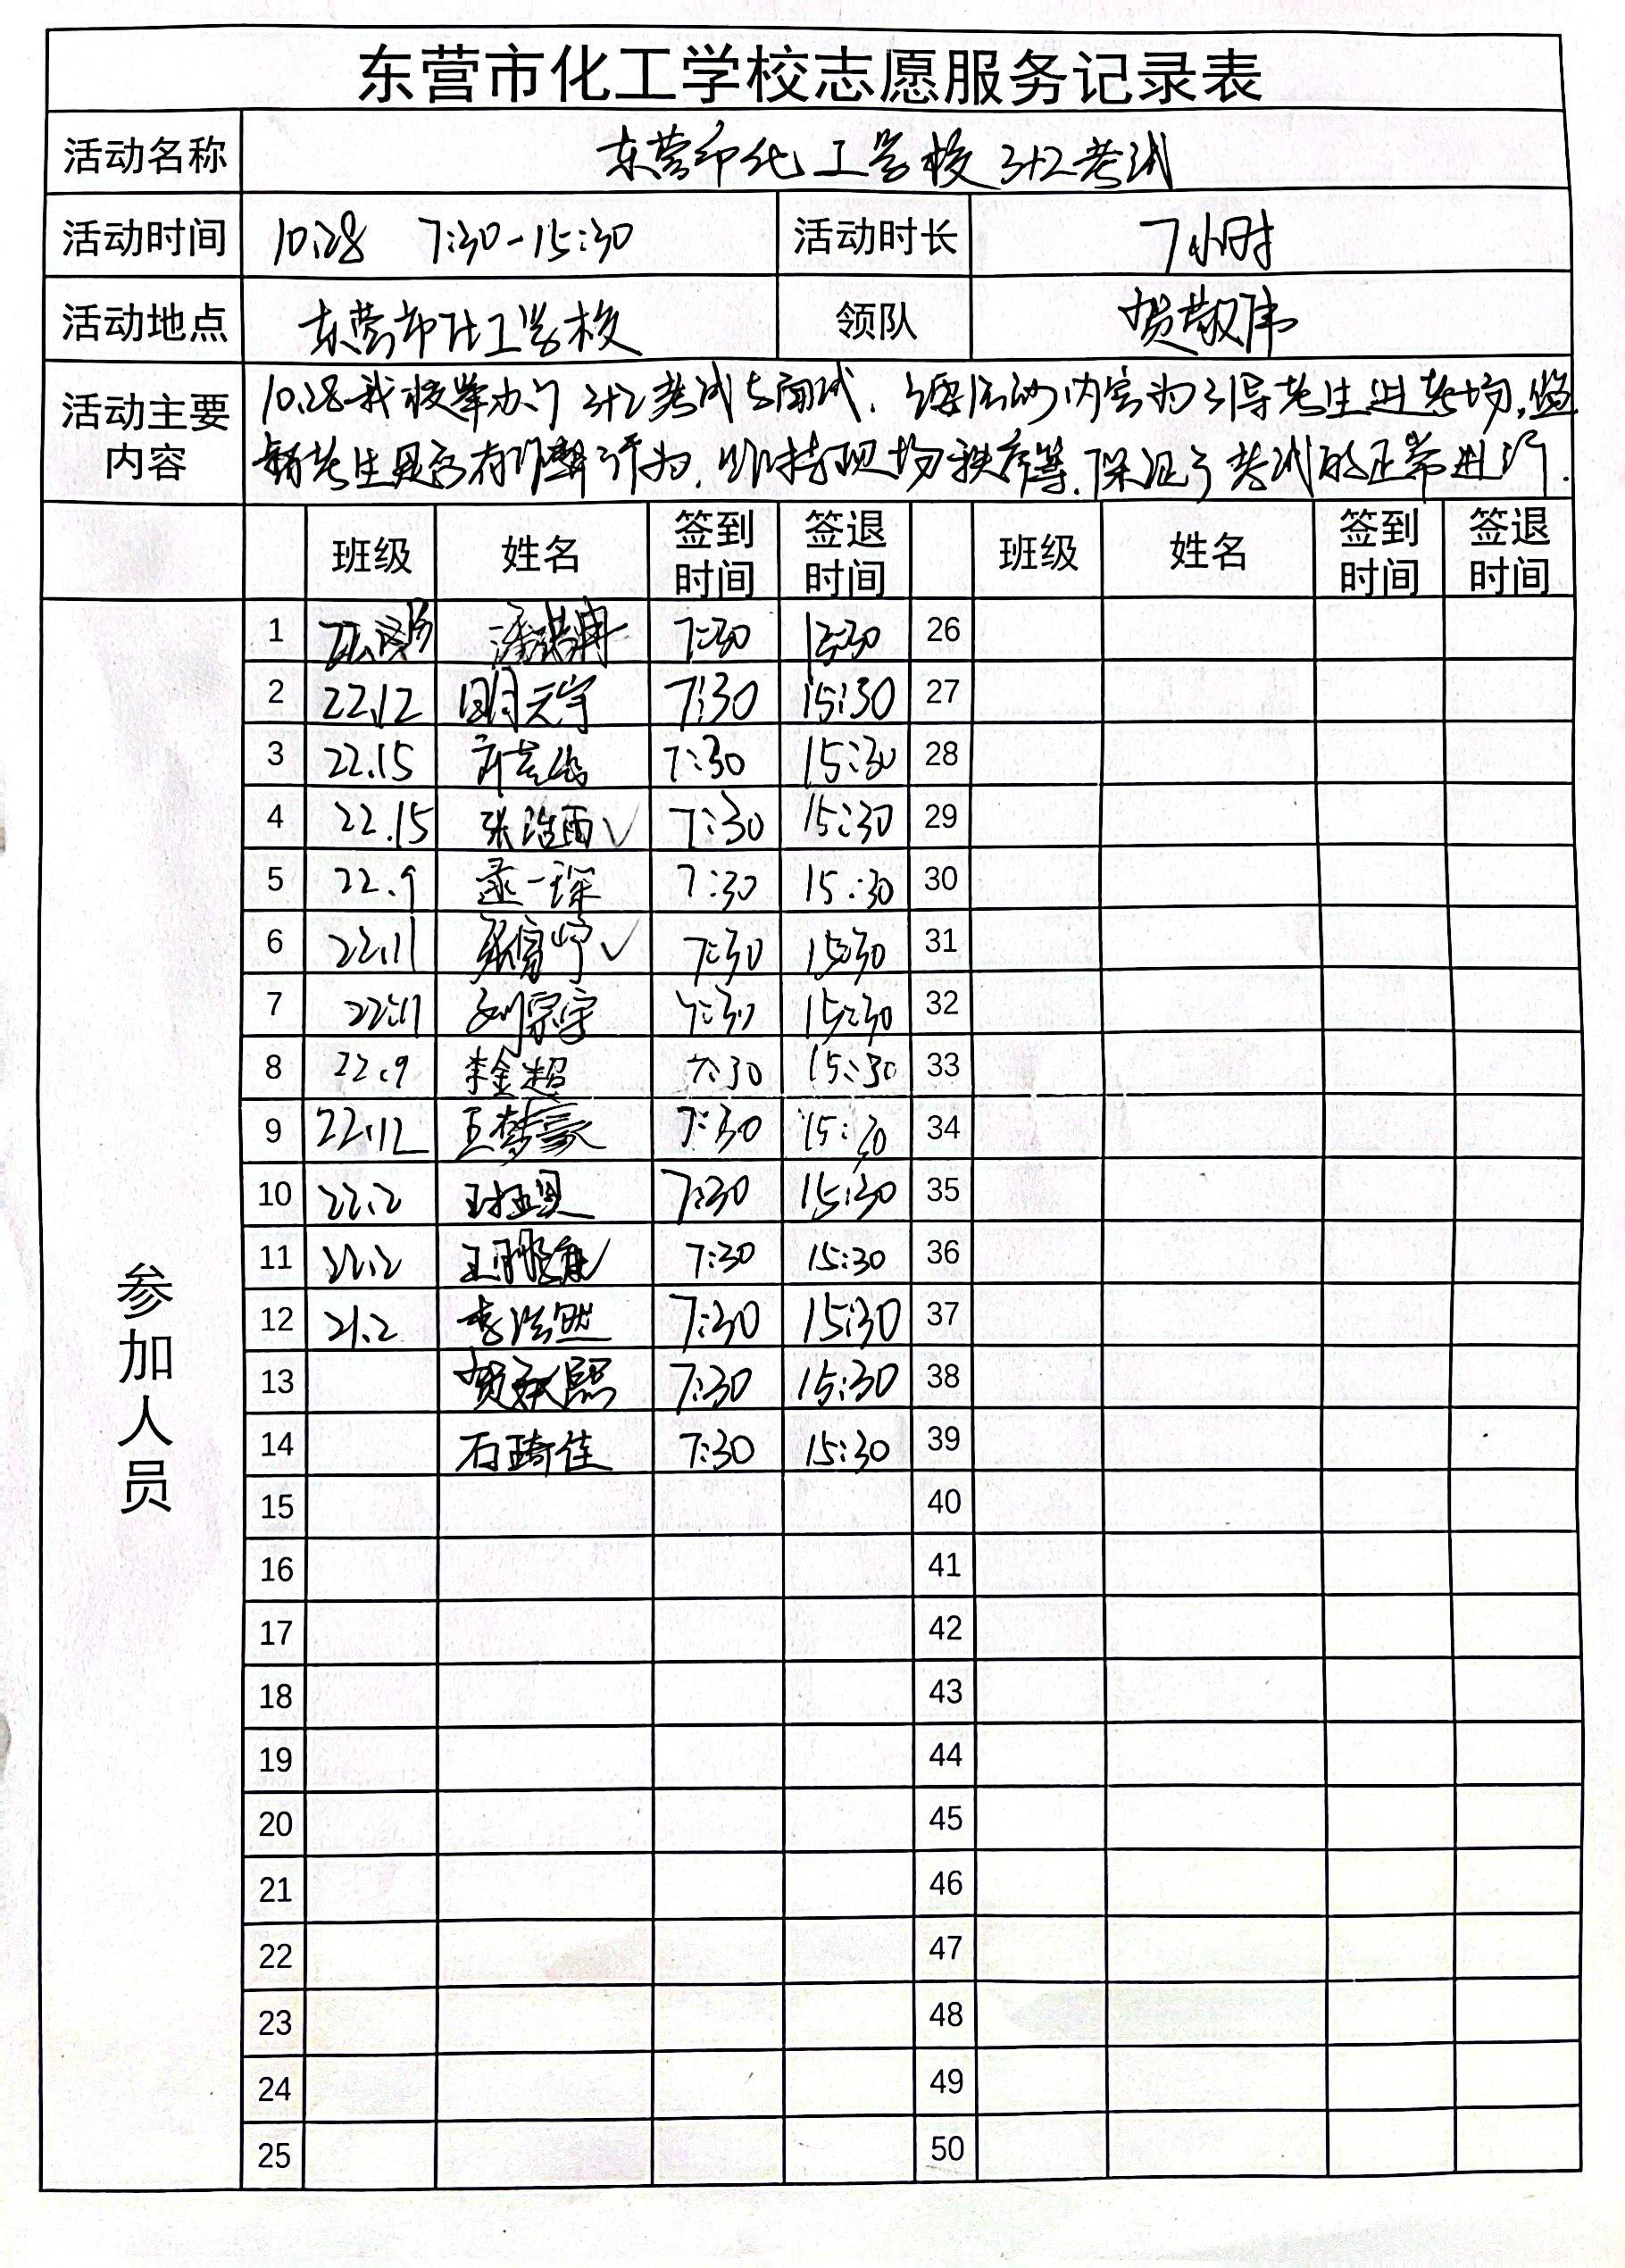 东营市化工学校志愿服务记录表
活动名称 东营市化工学校3+2考试
活动时间 10.28 7:30-15:30 活动时长 7小时
活动地点 东营市化工学校 领队 贺敬伟
活动主要内容 10.28我校举办了3+2考试与面试.主要活动内容为引导考生进考场,监
考生是否有作弊行为,维持现场秩序等,保证了考试的正常进行.
班级 姓名 签到时间 签退时间 班级 姓名 签到时间 签退时间
参加人员
1 7:30 15:30 26
2 22.12 明天宇 7:30 15:30 27
3 22.15 7:30 15:30 28
4 22.15 张浩雨✓ 7:30 15:30 29
5 22.9 孟一琛 7:30 15:30 30
6 22.11 ✓ 7:30 15:30 31
7 22.11 刘宗宇 7:30 15:30 32
8 22.9 李金超 7:30 15:30 33
9 22.12 王梦豪 7:30 15:30 34
10 22.2 7:30 15:30 35
11 22.2 7:30 15:30 36
12 21.2 李浩然 7:30 15:30 37
13 7:30 15:30 38
14 石琦佳 7:30 15:30 39
15 40
16 41
17 42
18 43
19 44
20 45
21 46
22 47
23 48
24 49
25 50